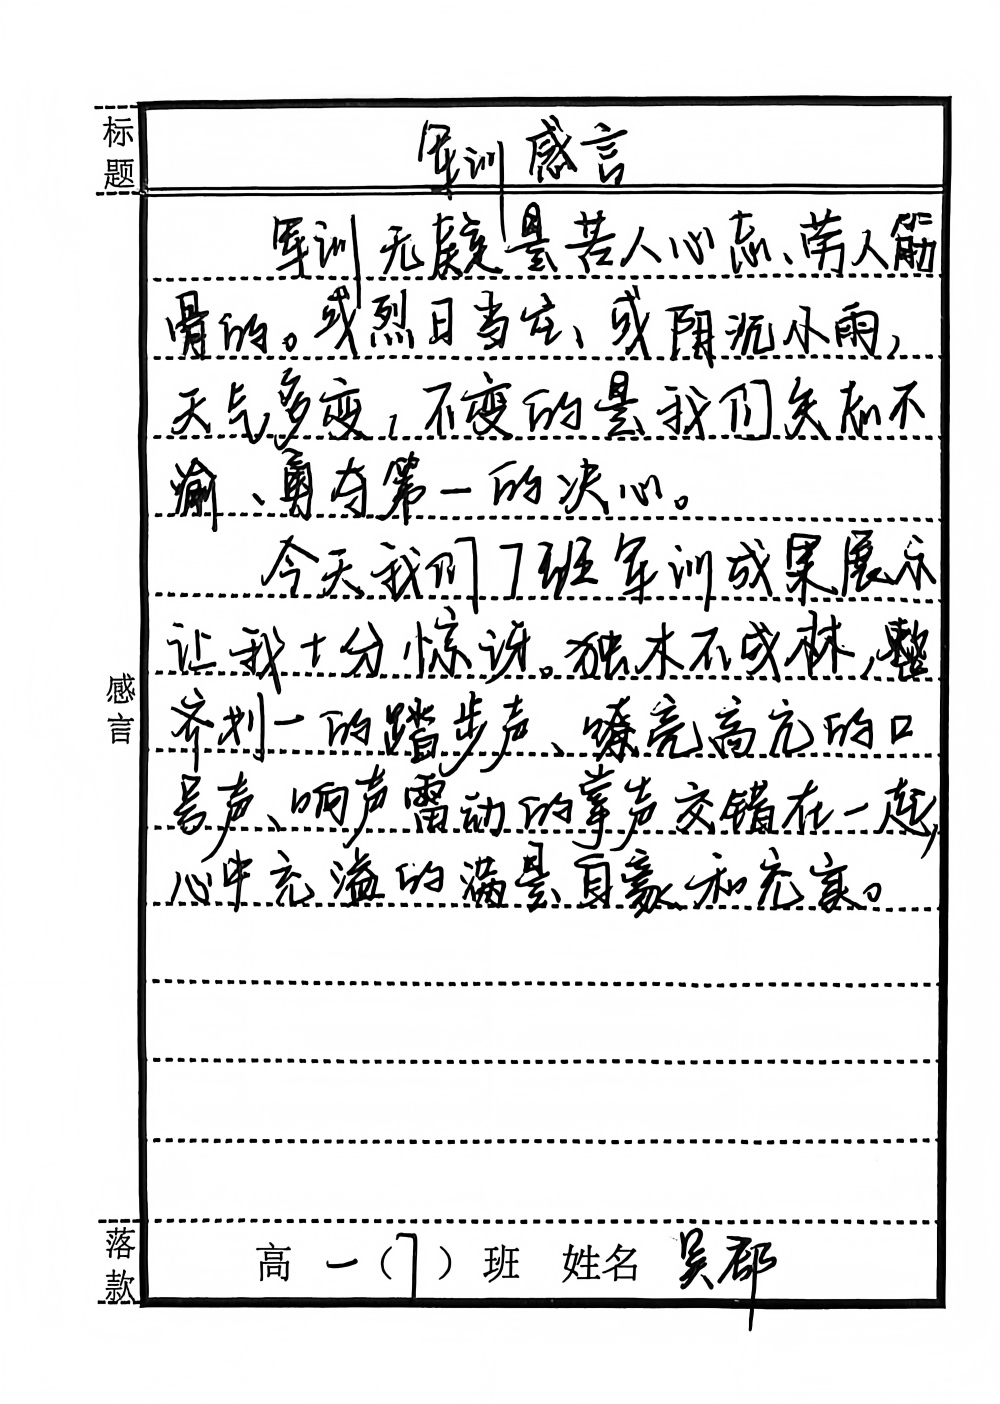 标题
军训感言
军训无疑是苦人心志、劳人筋
骨的。或烈日当空、或阴沉小雨，
天气多变，不变的是我们矢志不
渝、勇夺第一的决心。
今天我们7班军训成果展示
让我十分惊讶。独木不成林，整
齐划一的踏步声、嘹亮高亢的口
号声、响声雷动的掌声交错在一起，
心中充溢的满是自豪和充实。
感言
落款
高一（7）班 姓名 吴